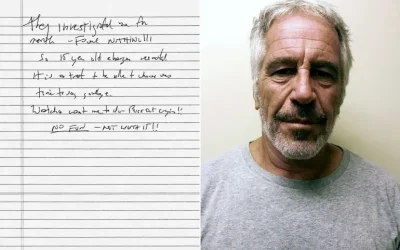 They investigated me for
month – Found NOTHING!!!
So 15 year old charges
It is a to be able to
time to say goodbye.
Watcha want me to do – Burst out cryin!!
NO FUN – NOT WORTH IT!!